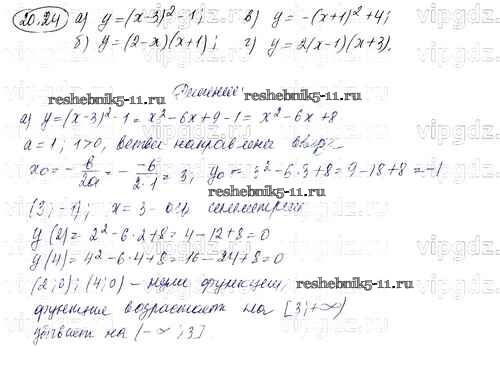 20.24 а) y=(x-3)²-1; в) y=-(x+1)²+4;
б) y=(2-x)(x+1); г) y=2(x-1)(x+3).
Решение:
reshebnik5-11.ru reshebnik5-11.ru
а) y=(x-3)²-1=x²-6x+9-1=x²-6x+8
a=1; 1>0, ветви направлены вверх
x₀=-b/2a=-(-6)/(2·1)=3; y₀=3²-6·3+8=9-18+8=-1
reshebnik5-11.ru
(3;-1); x=3-ось симметрии
y(2)=2²-6·2+8=4-12+8=0
y(4)=4²-6·4+8=16-24+8=0
(2;0); (4;0) - нули функции; reshebnik5-11.ru
функция возрастает на [3;+∞)
убывает на (-∞;3]
reshebnik5-11.ru
vipgdz